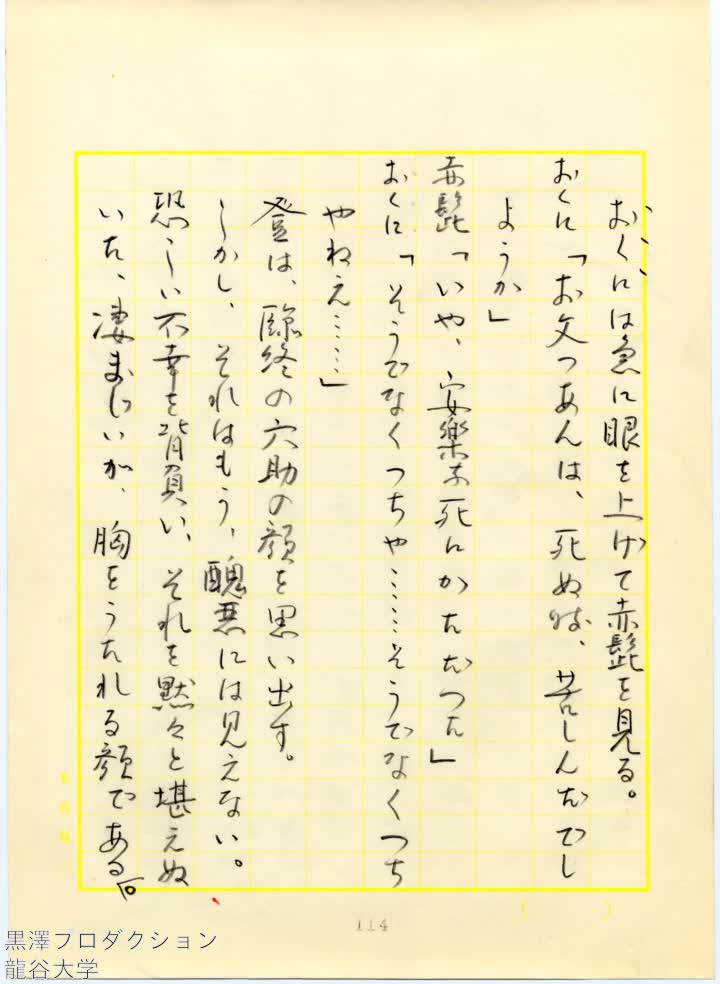 おくには急に眼を上げて赤髭を見る。
おくに「お文つあんは、死ぬ時、苦しんだでし
ようか」
赤髭「いや、安楽な死にかただつた」
おくに「そうでなくつちや……そうでなくつち
やねえ……」
登は、臨終の六助の顔を思い出す。
しかし、それはもう、醜悪には見えない。
恐しい不幸を背負い、それを黙々と堪えぬ
いた、凄まじいが、胸をうたれる顔である。
114
黒澤プロダクション
龍谷大学